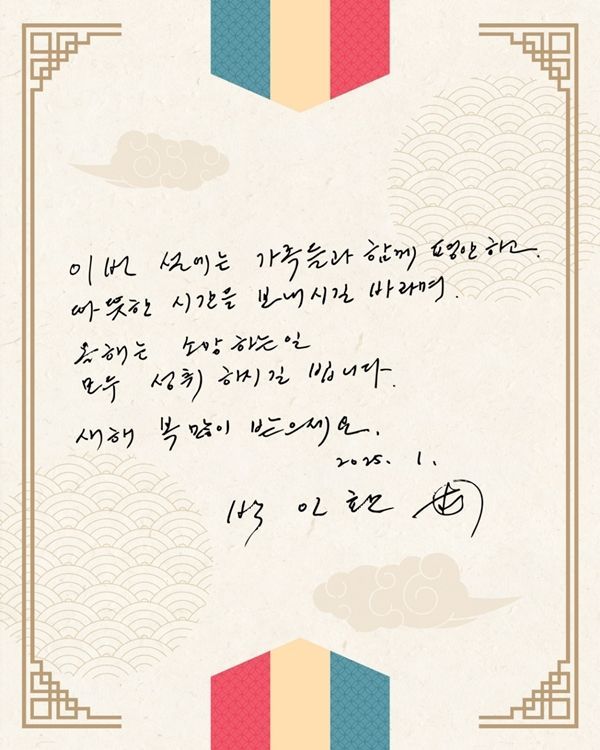 이번 설에는 가족들과 함께 평안하고.
따뜻한 시간을 보내시길 바라며.
올해는 소망하는일
모두 성취 하시길 빕니다.
새해 복 많이 받으세요.
2025. 1.
박 인 환